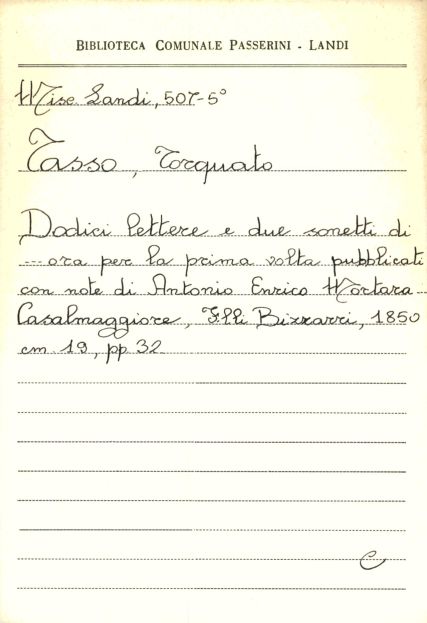 BIBLIOTECA COMUNALE PASSERINI - LANDI
Misc. Landi, 507-5°
Tasso, Torquato
Dodici lettere e due sonetti di
--- ora per la prima volta pubblicati
con note di Antonio Enrico Mortara
Casalmaggiore, F.lli Bizzarri, 1850
cm. 19, pp. 32
C